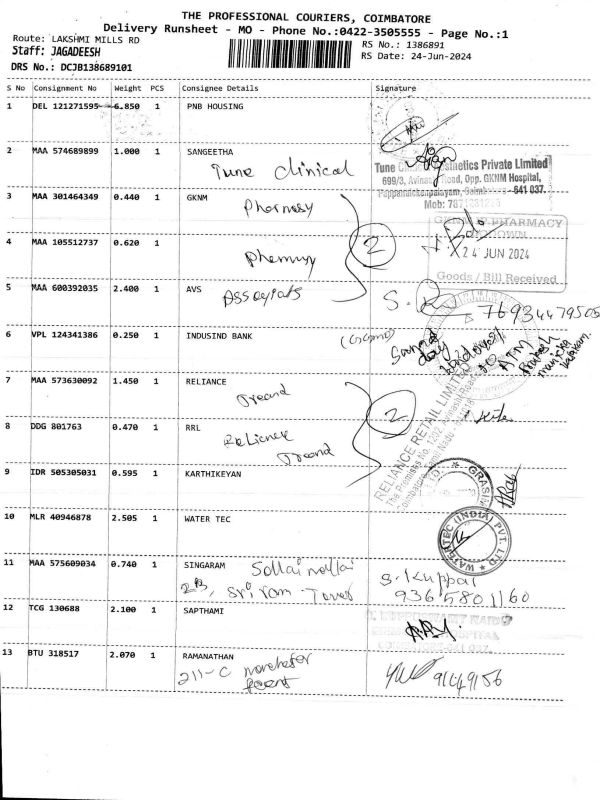 THE PROFESSIONAL COURIERS, COIMBATORE
Delivery Runsheet - MO - Phone No.:0422-3505555 - Page No.:1
Route: LAKSHMI MILLS RD
Staff: JAGADEESH
RS No.: 1386891
RS Date: 24-Jun-2024
DRS No.: DCJB138689101
S No Consignment No Weight PCS Consignee Details Signature
1 DEL 121271595 6.850 1 PNB HOUSING
2 MAA 574689899 1.000 1 SANGEETHA
Tune clinical
Tune Cosmetics Private Limited
699/3, Avinashi Road, Opp. GKNM Hospital,
Pappanaickenpalayam, Coimbatore - 641 037.
Mob:
3 MAA 301464349 0.440 1 GKNM
Pharmasy
PHARMACY
4 MAA 105512737 0.620 1
Pharmasy
2
24 JUN 2024
Goods / Bill Received
5 MAA 600392035 2.400 1 AVS
Associats
S. R
76934479505
6 VPL 124341386 0.250 1 INDUSIND BANK
ATM
7 MAA 573630092 1.450 1 RELIANCE
Treand
RELIANCE RETAIL LIMITED
8 DDG 801763 0.470 1 RRL
Reliance
Treand
2
9 IDR 505305031 0.595 1 KARTHIKEYAN
GRASIM
10 MLR 40946878 2.505 1 WATER TEC
WATERTEC (INDIA) PVT. LTD
11 MAA 575609034 0.740 1 SINGARAM
2B, Sri ram Tower
S. Kuppar
936 5801160
12 TCG 130688 2.100 1 SAPTHAMI
13 BTU 318517 2.070 1 RAMANATHAN
211-C
9149156